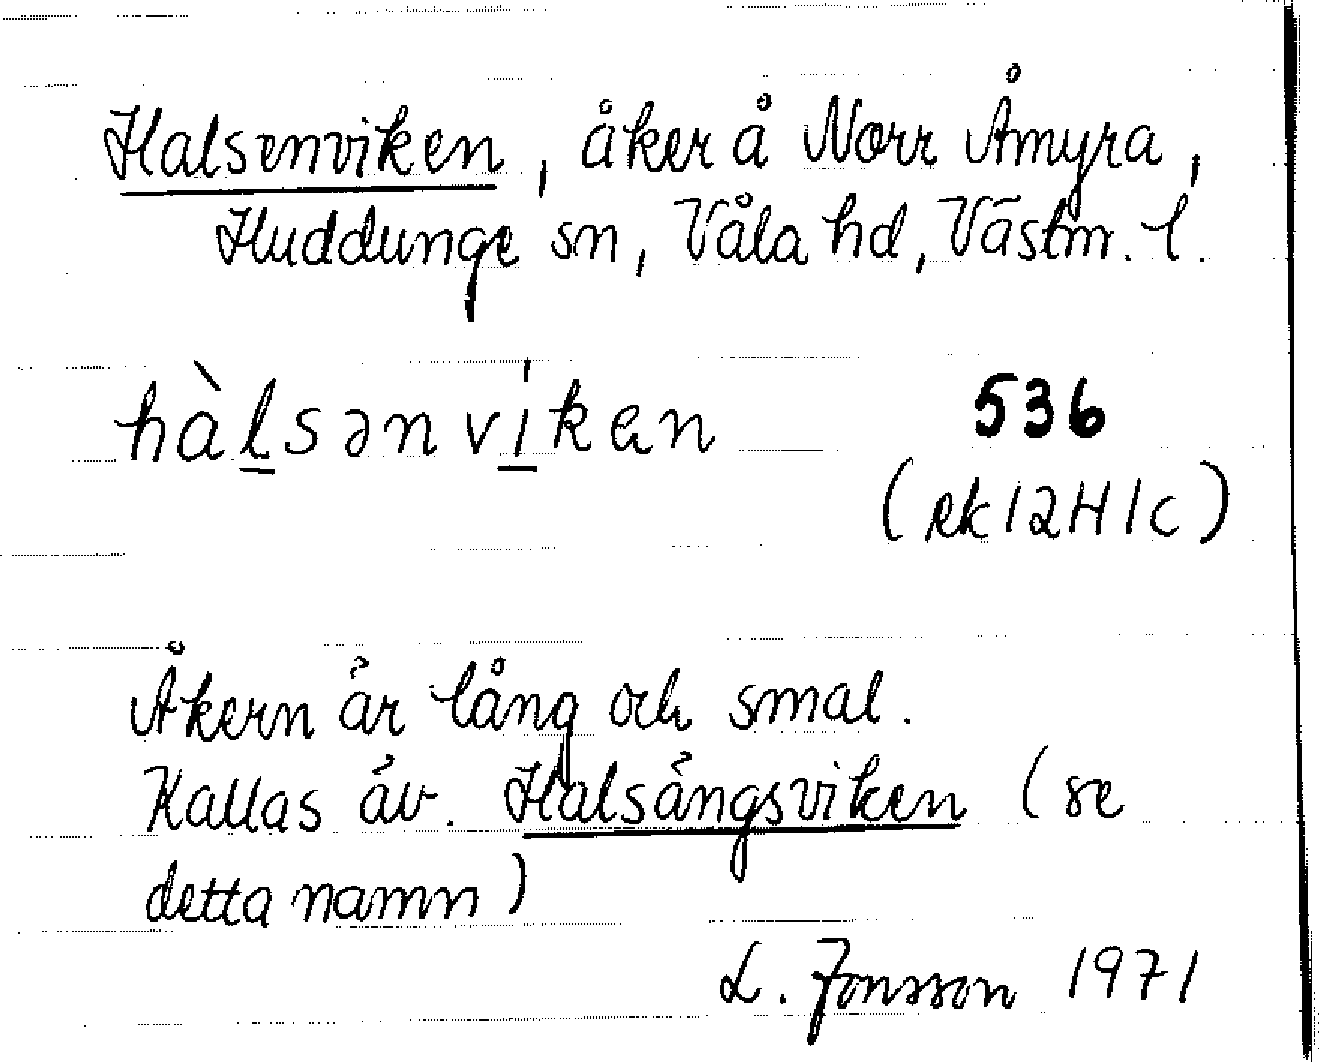 Halsenviken, åker å Norr Åmyra,
Huddunge sn, Våla hd, Västm. l.
hàl̲sənví̲ken
536
(ek 12H1c)
Åkern är lång och smal.
Kallas äv. Halsängsviken (se
detta namn)
L. Jonsson 1971